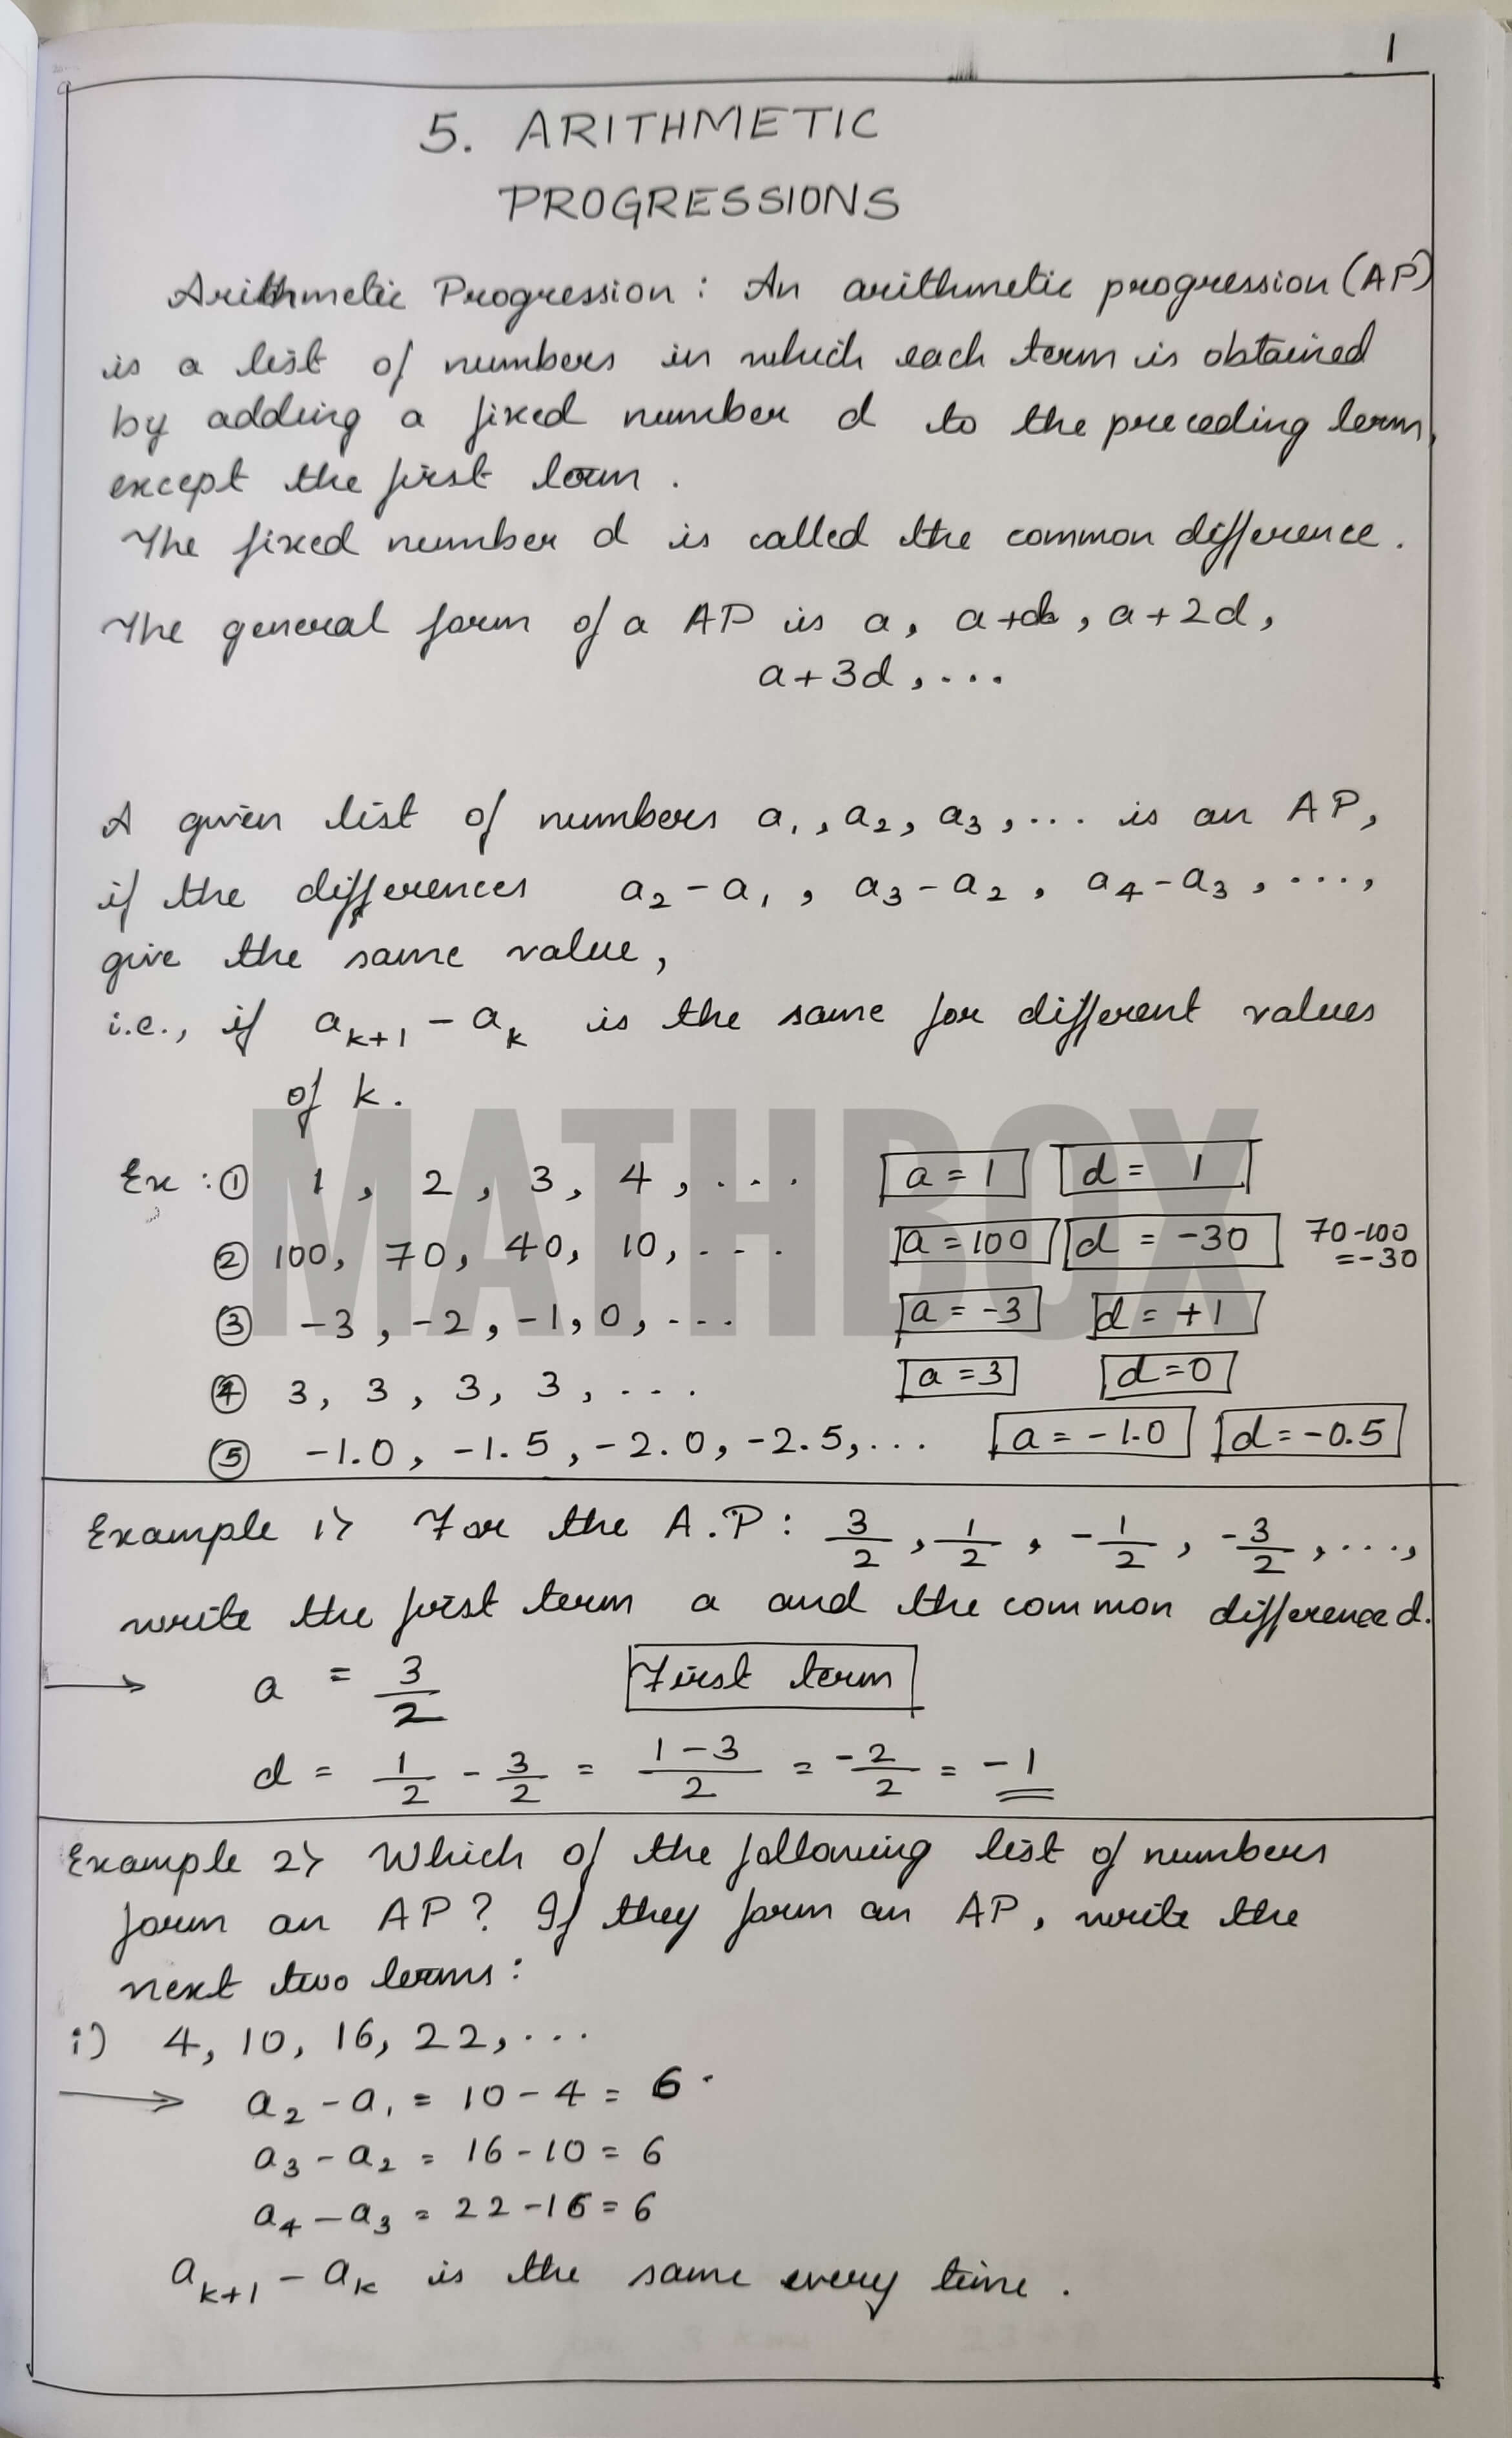 1
5. ARITHMETIC
PROGRESSIONS
Arithmetic Progression : An arithmetic progression (AP)
is a list of numbers in which each term is obtained
by adding a fixed number d to the preceding term,
except the first term .
The fixed number d is called the common difference .
The general form of a AP is a, a+d, a+2d,
a+3d, ...
A given list of numbers a₁, a₂, a₃, ... is an AP,
if the differences a₂-a₁, a₃-a₂, a₄-a₃, ...,
give the same value,
i.e., if aₖ₊₁ - aₖ is the same for different values
of k.
MATHBOX
Ex : ① 1, 2, 3, 4, ... a = 1 d = 1
② 100, 70, 40, 10, ... a = 100 d = -30 70-100
=-30
③ -3, -2, -1, 0, ... a = -3 d = +1
④ 3, 3, 3, 3, ... a = 3 d=0
⑤ -1.0, -1.5, -2.0, -2.5, ... a = -1.0 d = -0.5
Example 1> For the A.P: 3/2, 1/2, -1/2, -3/2, ...,
write the first term a and the common difference d.
→ a = 3/2 First term
d = 1/2 - 3/2 = (1-3)/2 = -2/2 = -1
Example 2> Which of the following list of numbers
form an AP? If they form an AP, write the
next two terms:
i) 4, 10, 16, 22, ...
→ a₂ - a₁ = 10 - 4 = 6
a₃ - a₂ = 16 - 10 = 6
a₄ - a₃ = 22 - 16 = 6
aₖ₊₁ - aₖ is the same every time .